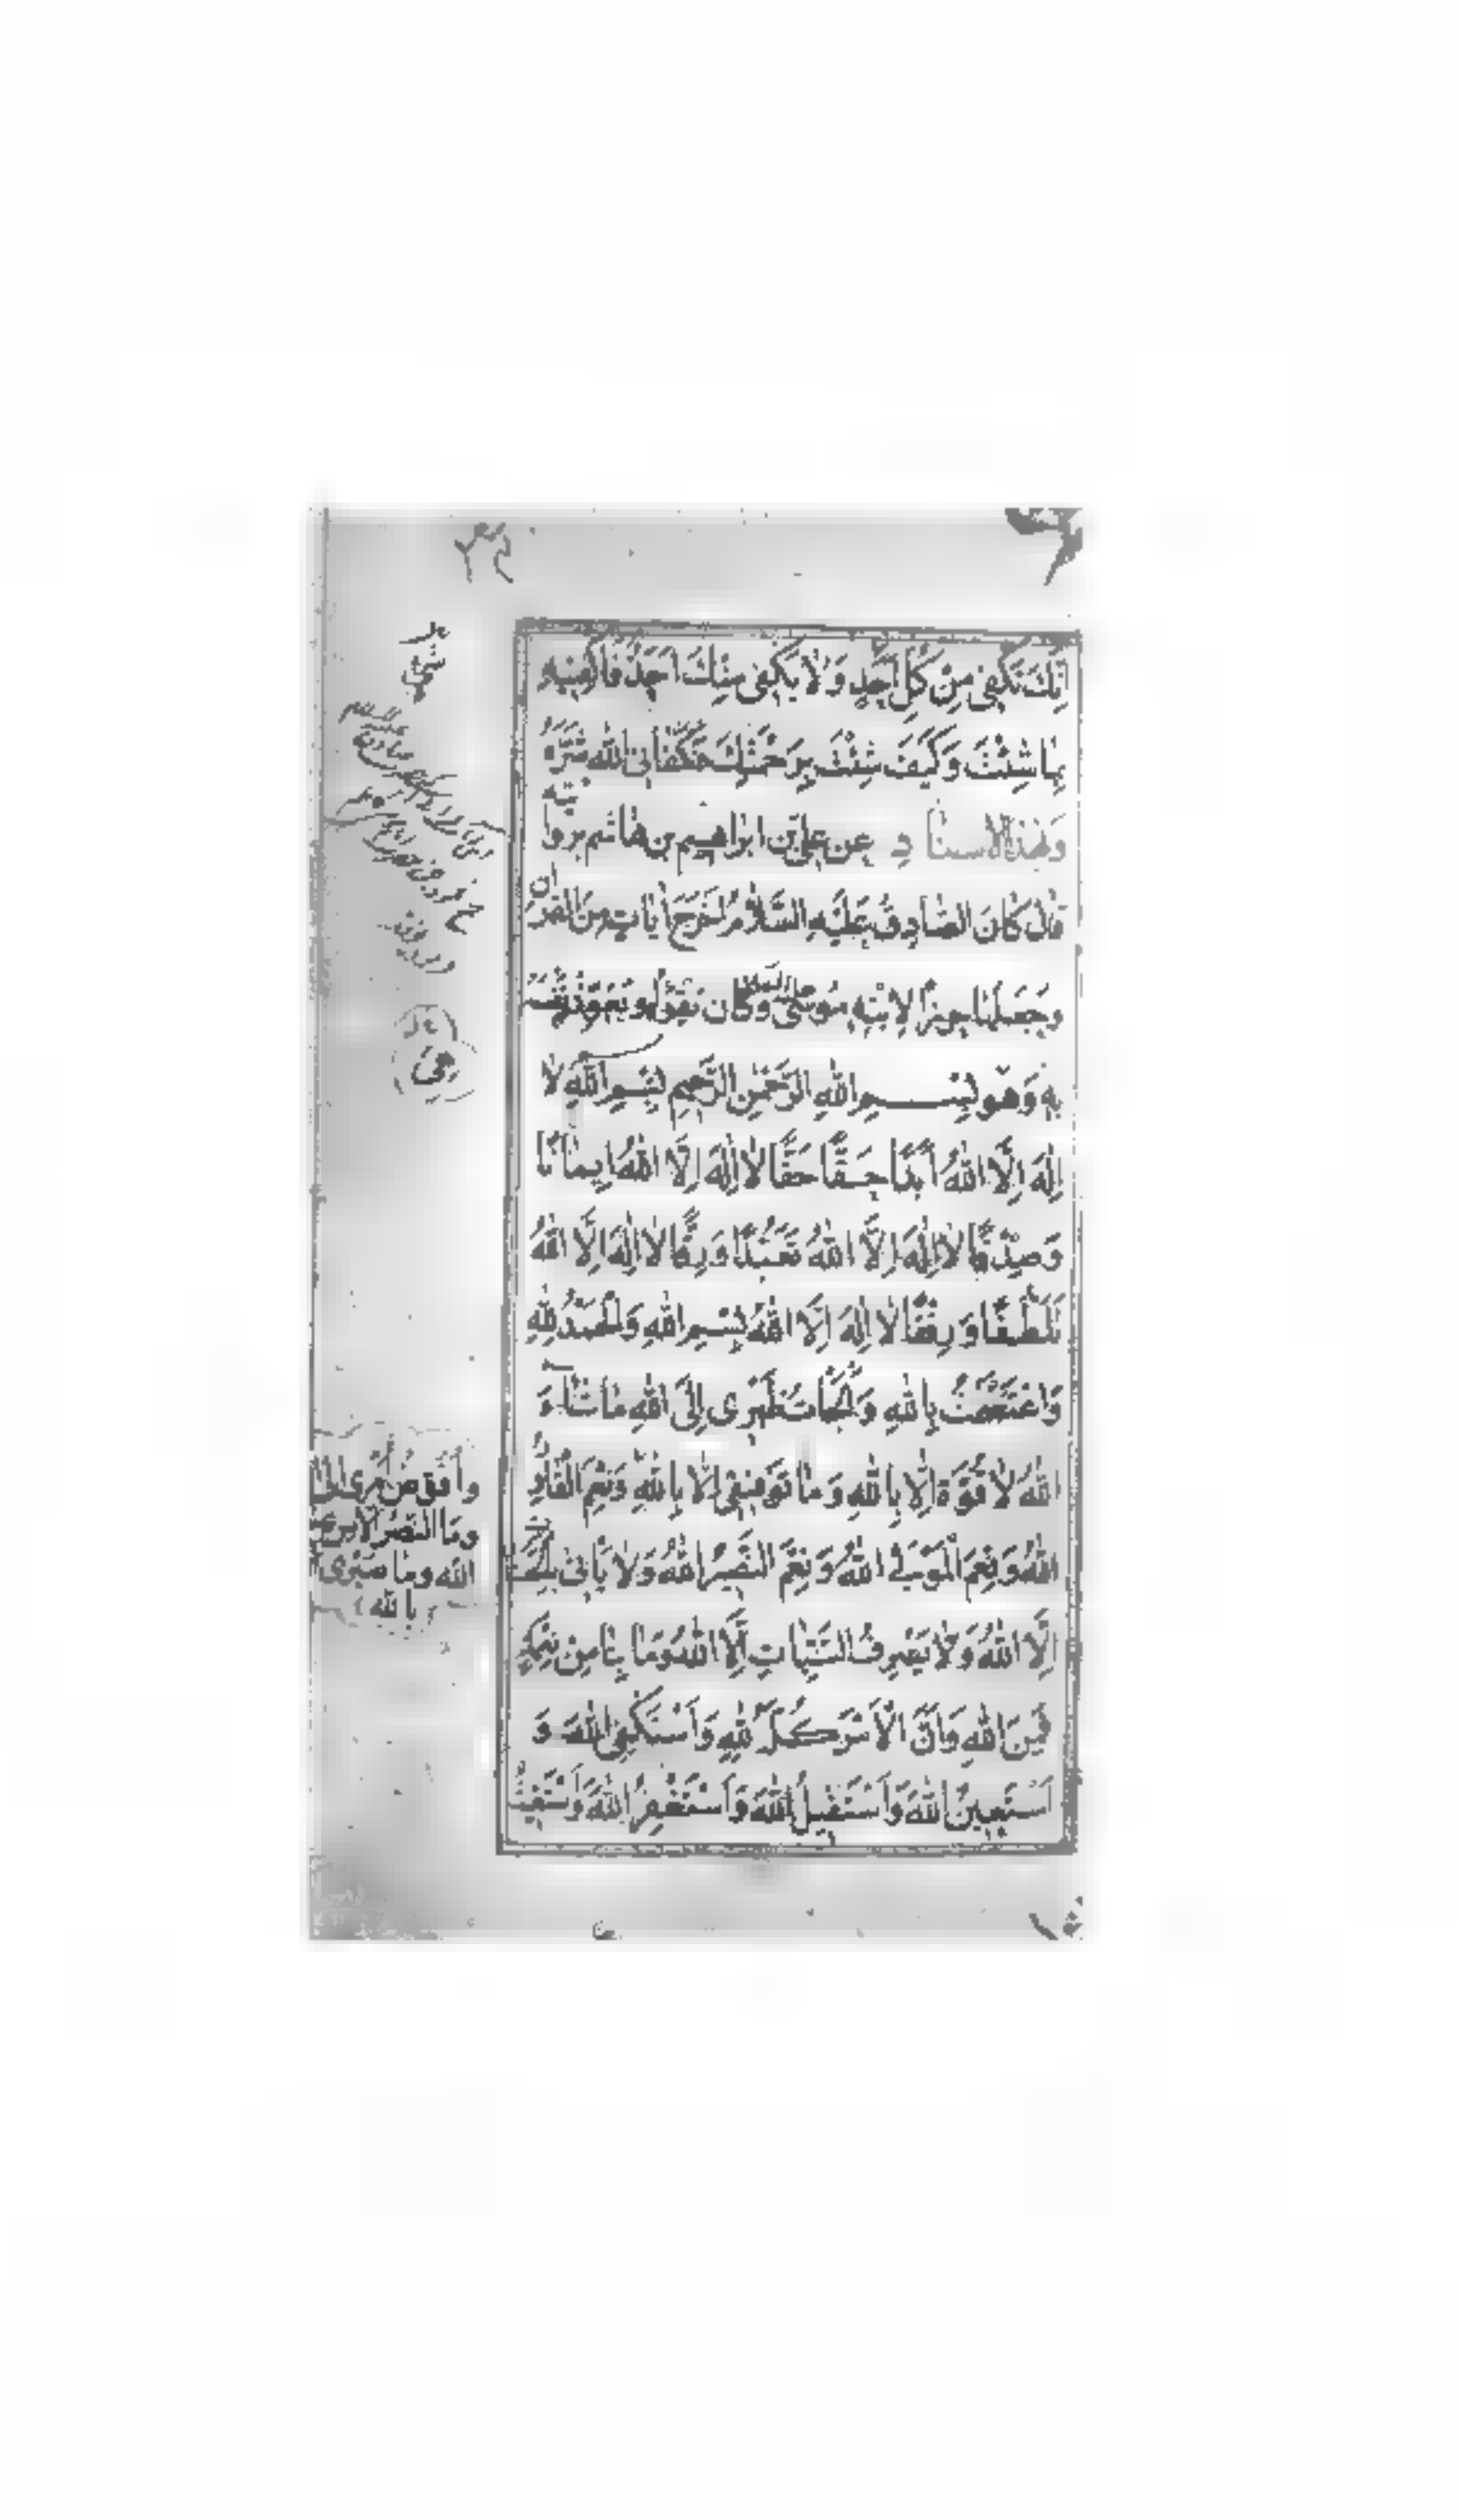 اِنَّكَ تَكْفِى مِنْ كُلِّ اَحَدٍ وَلٰا يَكْفِى مِنْكَ اَحَدٌ فَاكْفِنِيهِ
بِمٰا شِئْتَ وَكَيْفَ شِئْتَ بِرَحْمَتِكَ فَكَفٰانِىَ اللّٰهُ شَرَّهُ
وَبهٰذَا الْاسنٰادِ عن على بن ابرٰاهيم بن هٰاشم يرويه
قٰالَ كٰانَ الصّٰادِقُ عَلَيْهِ السَّلٰامُ اَخْرَجَ اٰيٰاتٍ مِنَ الْقُرْاٰنِ
وَجَعَلَهٰا حِرْزًا لِابْنِهِ مُوسٰى عليه السلام وَكٰانَ يَقْرَؤُهُ وَيُعَوِّذُ نَفْسَهُ
بِهِ وَهُوَ بِسْمِ اللّٰهِ الرَّحْمٰنِ الرَّحِيمِ بِسْمِ اللّٰهِ لٰا
اِلٰهَ اِلَّا اللّٰهُ اَبَدًا حَقًّا حَقًّا لٰا اِلٰهَ اِلَّا اللّٰهُ اِيمٰانًا
وَصِدْقًا لٰا اِلٰهَ اِلَّا اللّٰهُ تَعَبُّدًا وَرِقًّا لٰا اِلٰهَ اِلَّا اللّٰهُ
تَلَطُّفًا وَرِفْقًا لٰا اِلٰهَ اِلَّا اللّٰهُ بِسْمِ اللّٰهِ وَالْحَمْدُ لِلّٰهِ
وَاعْتَصَمْتُ بِاللّٰهِ وَاَلْجَأْتُ ظَهْرِى اِلَى اللّٰهِ مٰا شٰاءَ
اللّٰهُ لٰا قُوَّةَ اِلَّا بِاللّٰهِ وَمٰا تَوْفِيقِى اِلَّا بِاللّٰهِ وَنِعْمَ الْقٰادِرُ
اللّٰهُ وَنِعْمَ الْمَوْلٰى اللّٰهُ وَنِعْمَ النَّصِيرُ اللّٰهُ وَلٰا يَأْتِى بِالْحَسَنٰاتِ
اِلَّا اللّٰهُ وَلٰا يَصْرِفُ السَّيِّئٰاتِ اِلَّا اللّٰهُ وَمٰا بِنٰا مِنْ نِعْمَةٍ
فَمِنَ اللّٰهِ وَاَنَّ الْاَمْرَ كُلَّهُ لِلّٰهِ وَاَسْتَكْفِى اللّٰهَ وَ
اَسْتَعِينُ اللّٰهَ وَاَسْتَقِيلُ اللّٰهَ وَاَسْتَغْفِرُ اللّٰهَ وَاَسْتَغِيثُ
وَاُفَوِّضُ اَمْرِى اِلَى اللّٰه
وَمَا النَّصْرُ اِلَّا مِنْ عِنْدِ
اللّٰهِ وَمٰا صَبْرِى اِلَّا
بِاللّٰهِ